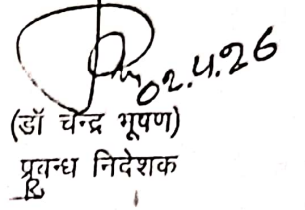 02.4.26
(डॉ चन्द्र भूषण)
प्रबन्ध निदेशक